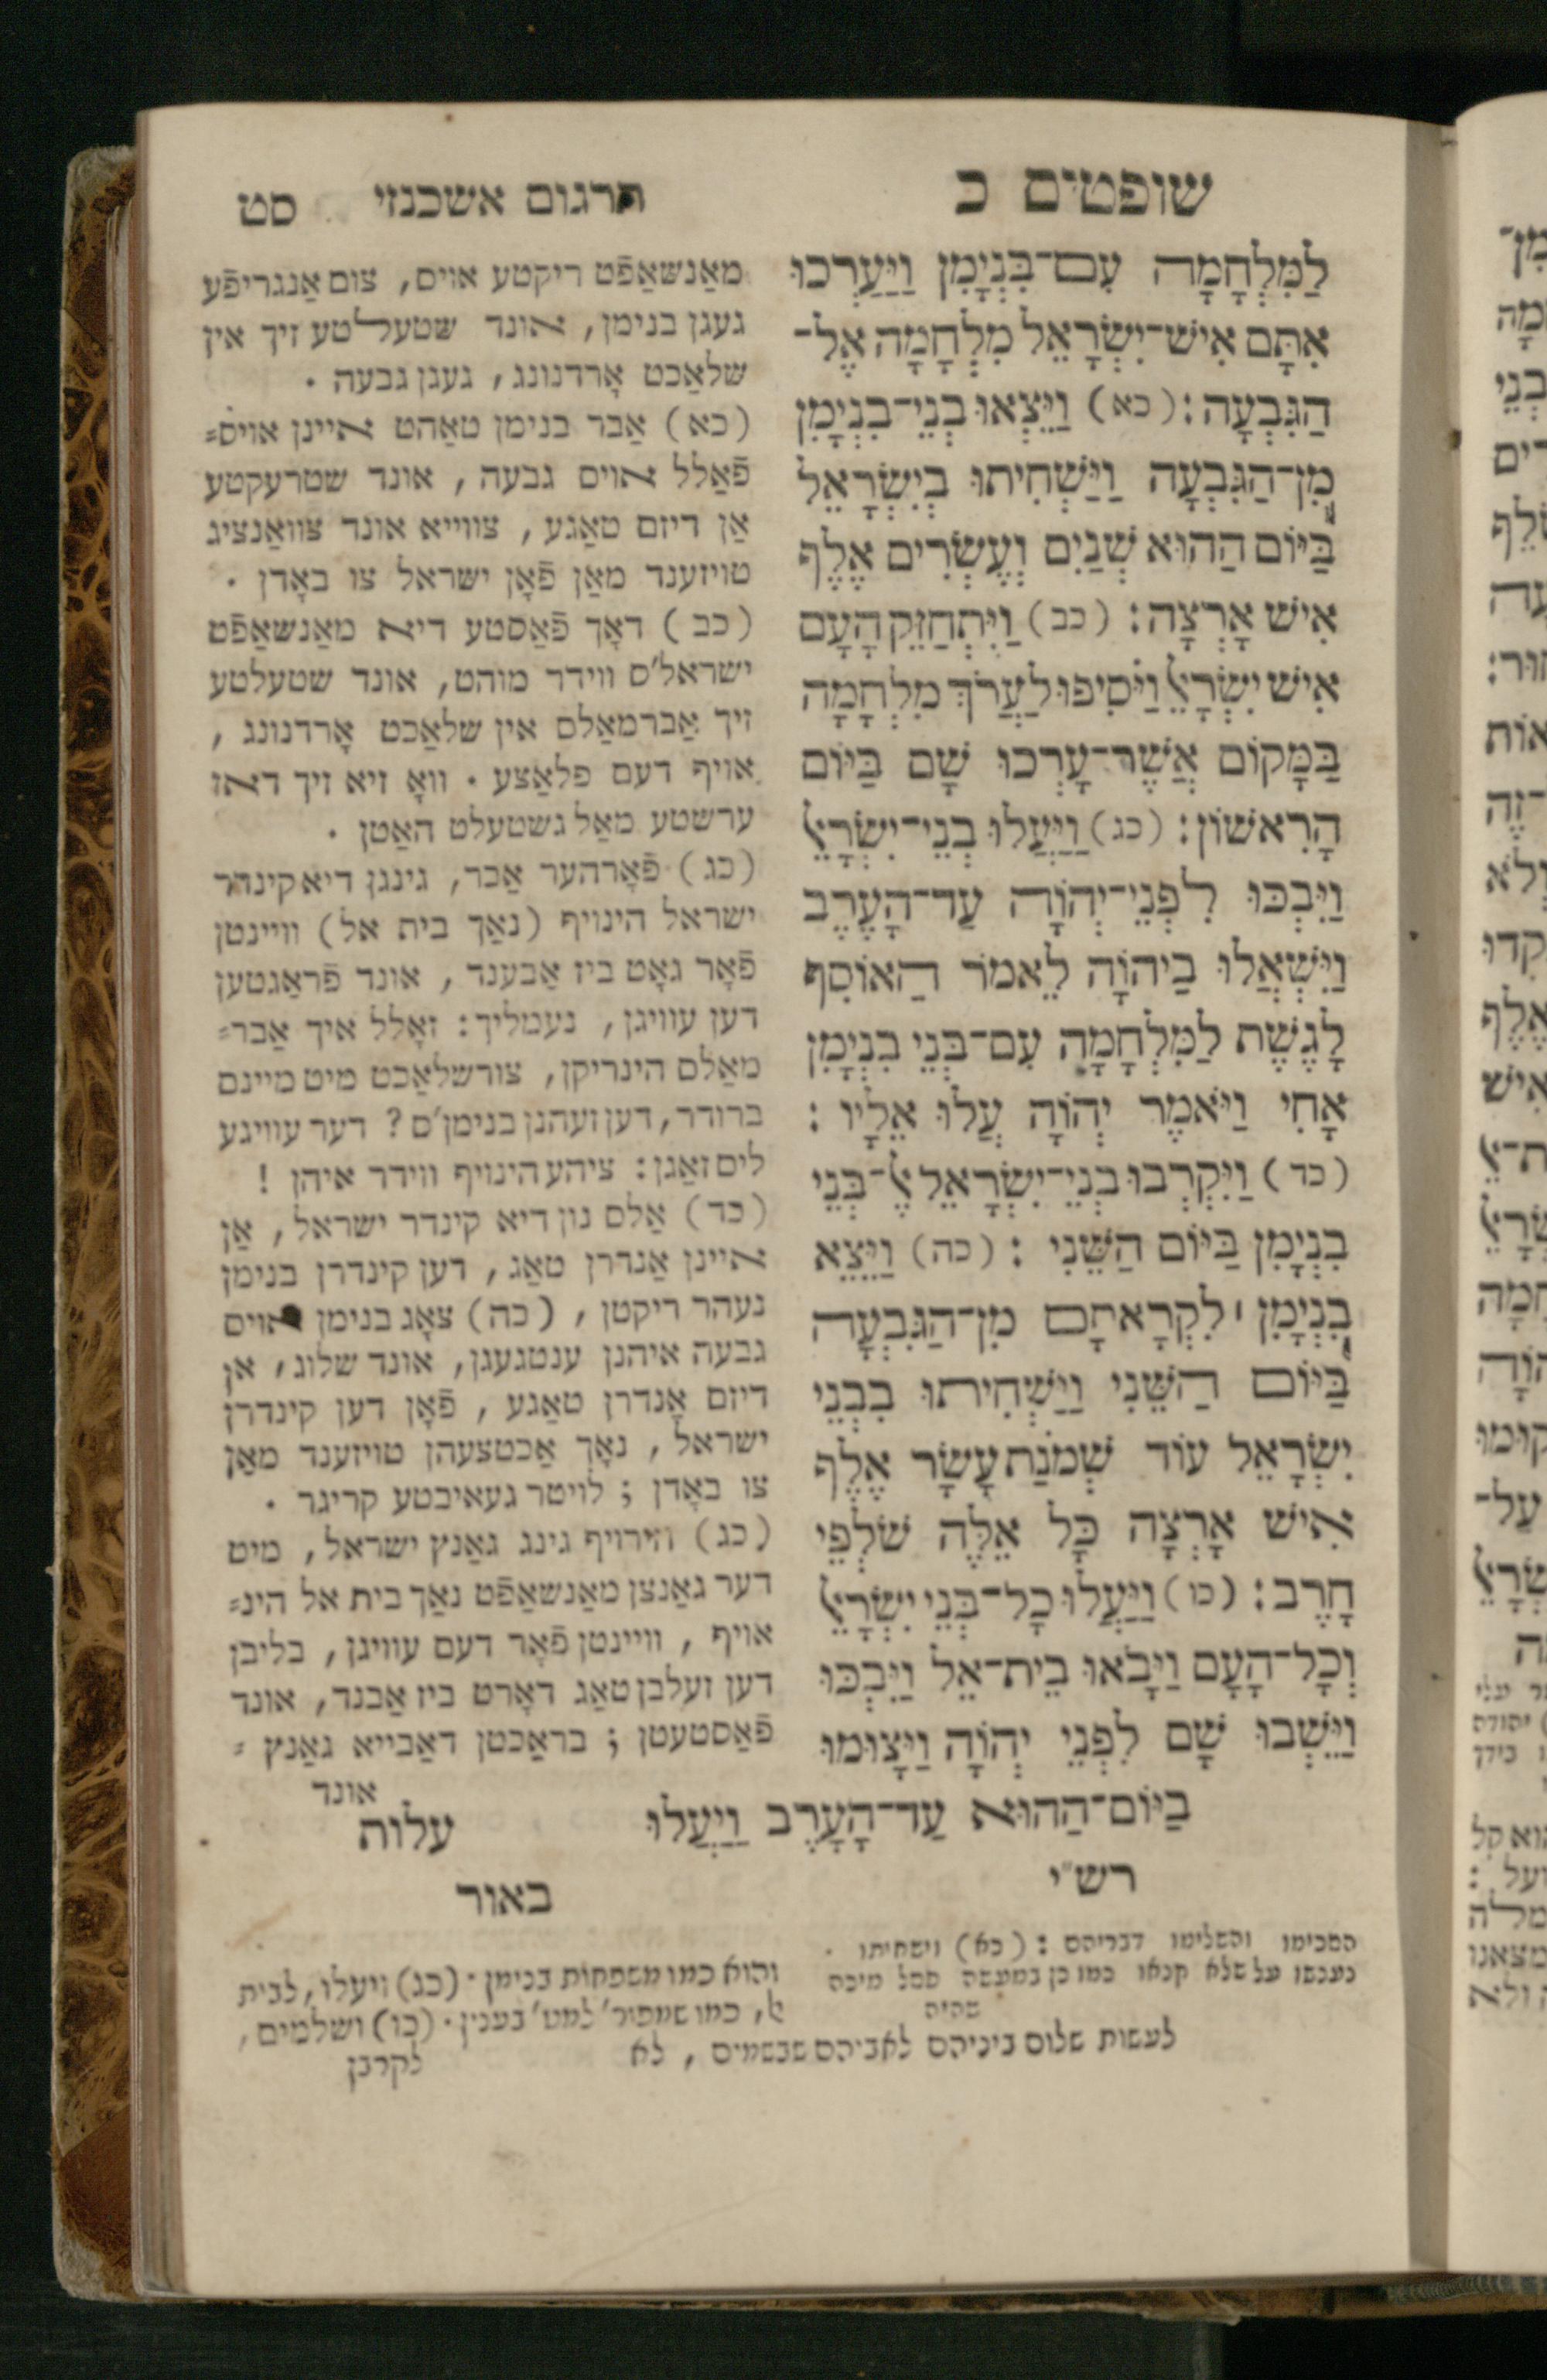 שופטים כ
תרגום אשכנזי
סט
לַמִּלְחָמָה עִם־בִּנְיָמִן וַיַּעַרְכוּ
אִתָּם אִישׁ־יִשְׂרָאֵל מִלְחָמָה אֶל־
הַגִּבְעָה: (כא) וַיֵּצְאוּ בְנֵי־בִנְיָמִן
מִן־הַגִּבְעָה וַיַּשְׁחִיתוּ בְיִשְׂרָאֵל
בַּיּוֹם הַהוּא שְׁנַיִם וְעֶשְׂרִים אֶלֶף
אִישׁ אָרְצָה: (כב) וַיִּתְחַזֵּק הָעָם
אִישׁ יִשְׂרָאֵל וַיֹּסִיפוּ לַעֲרֹךְ מִלְחָמָה
בַּמָּקוֹם אֲשֶׁר־עָרְכוּ שָׁם בַּיּוֹם
הָרִאשׁוֹן: (כג) וַיַּעֲלוּ בְנֵי־יִשְׂרָאֵל
וַיִּבְכּוּ לִפְנֵי־יְהוָֹה עַד־הָעֶרֶב
וַיִּשְׁאֲלוּ בַיהוָֹה לֵאמֹר הַאוֹסִף
לָגֶשֶׁת לַמִּלְחָמָה עִם־בְּנֵי בִנְיָמִן
אָחִי וַיֹּאמֶר יְהוָֹה עֲלוּ אֵלָיו :
(כד) וַיִּקְרְבוּ בְנֵי־יִשְׂרָאֵל אֶל־בְּנֵי
בִנְיָמִן בַּיּוֹם הַשֵּׁנִי : (כה) וַיֵּצֵא
בִנְיָמִן ׀ לִקְרָאתָם מִן־הַגִּבְעָה
בַּיּוֹם הַשֵּׁנִי וַיַּשְׁחִיתוּ בִבְנֵי
יִשְׂרָאֵל עוֹד שְׁמֹנַת עָשָׂר אֶלֶף
אִישׁ אָרְצָה כָּל אֵלֶּה שֹׁלְפֵי
חָרֶב: (כו) וַיַּעֲלוּ כָל־בְּנֵי יִשְׂרָאֵל
וְכָל־הָעָם וַיָּבֹאוּ בֵית־אֵל וַיִּבְכּוּ
וַיֵּשְׁבוּ שָׁם לִפְנֵי יְהוָֹה וַיָּצוּמוּ
בַיּוֹם־הַהוּא עַד־הָעָרֶב וַיַּעֲלוּ
עלות
מאַנשאַפֿט ריקטע אויס, צום אַנגריפֿע
געגן בנימן, אונד שטעללטע זיך אין
שלאַכט אָרדנונג, געגן גבעה .
(כא) אַבר בנימן טאַהט איינן אויס=
פֿאַלל אויס גבעה, אונד שטרעקטע
אַן דיזם טאַגע, צווייא אונד צוואַנציג
טויזענד מאַן פֿאָן ישראל צו באָדן .
(כב) דאָך פֿאַסטע דיא מאַנשאַפֿט
ישראל'ס ווידר מוהט, אונד שטעלטע
זיך אַברמאַלס אין שלאַכט אָרדנונג ,
אויף דעם פלאַצע . וואָ זיא זיך דאז
ערשטע מאַל גשטעלט האַטן .
(כג) פֿאָרהער אַבר, גינגן דיא קינדר
ישראל הינויף (נאַך בית אל) וויינטן
פֿאָר גאָט ביז אַבענד, אונד פֿראַגטען
דען עוויגן, נעמליך: זאָלל איך אַבר=
מאַלס הינריקן, צורשלאַכט מיט מיינם
ברודר, דען זעהנן בנימן'ס? דער עוויגע
ליס זאַגן: ציהע הינויף ווידר איהן !
(כד) אַלס נון דיא קינדר ישראל, אַן
איינן אַנדרן טאַג, דען קינדרן בנימן
נעהר ריקטן, (כה) צאָג בנימן אויס
גבעה איהנן ענטגעגן, אונד שלוג, אן
דיזם אָנדרן טאַגע, פֿאָן דען קינדרן
ישראל, נאָך אַכטצעהן טויזענד מאַן
צו באָדן ; לויטר געאיבטע קריגר .
(כג) הירויף גינג גאַנץ ישראל, מיט
דער גאַנצן מאַנשאַפֿט נאַך בית אל הינ=
אויף, וויינטן פֿאָר דעם עוויגן, בליבן
דען זעלבן טאַג דאָרט ביז אַבנד, אונד
פֿאַסטעטן ; בראַכטן דאַבייא גאַנץ =
אונד
רש״י
הסכימו והשלימו דבריהם : (כא) וישחיתו .
נענשו על שלא קנאו כמו כן במעשה פסל מיכה
שהיה
באור
והוא כמו משפחות בנימן . (כג) ויעלו, לבית
אל, כמו שמפור' למט' בענין . (כו) ושלמים,
לעשות שלום ביניהם לאביהם שבשמים, לא
לקרבן